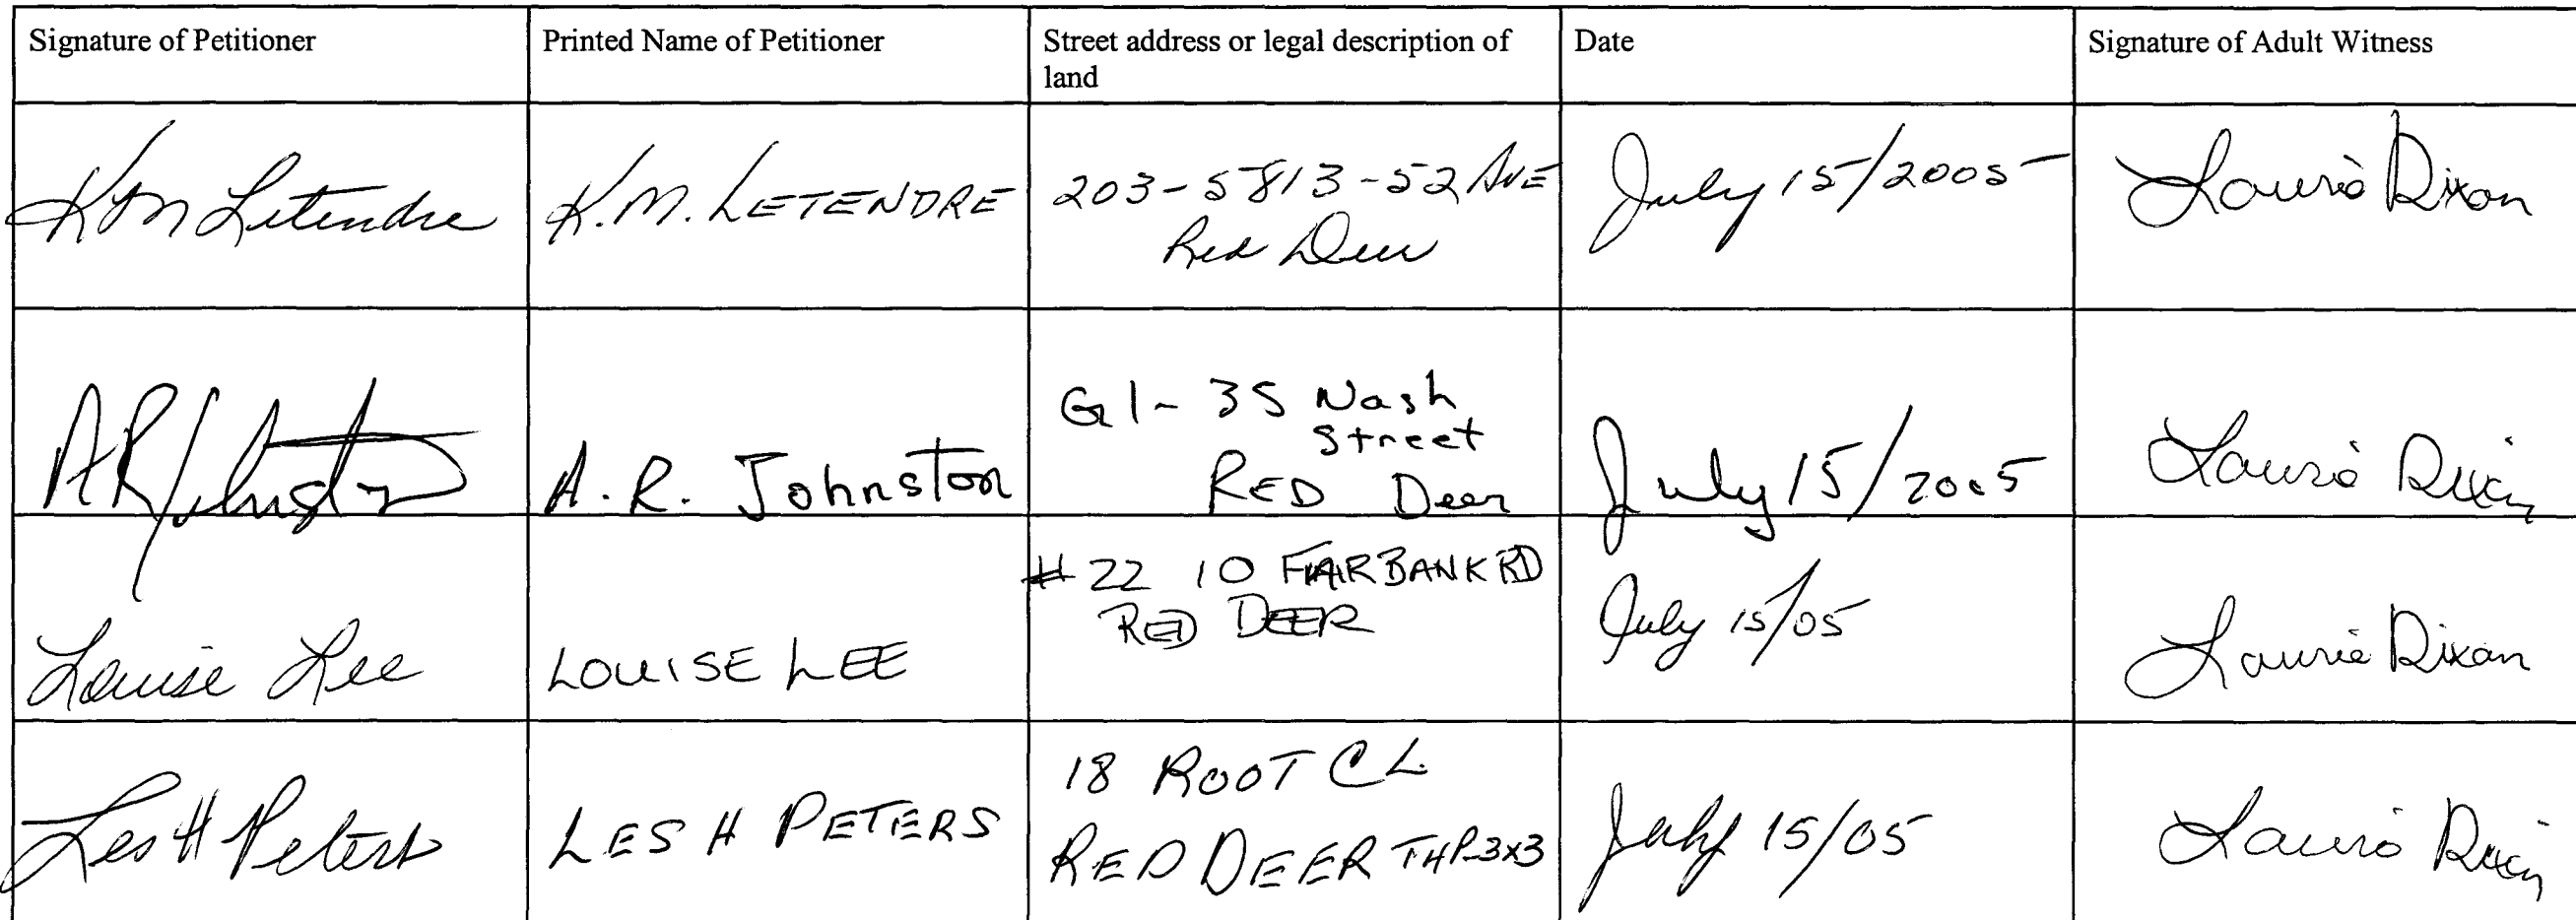 Signature of Petitioner
Printed Name of Petitioner
Street address or legal description of
land
Date
Signature of Adult Witness
KM Letendre
K.M. LETENDRE
203-5813-52 AVE
Red Deer
July 15/2005
Laurie Dixon
AR Johnston
A.R. Johnston
G1-35 Nash
Street
RED Deer
July 15/2005
Laurie Dixon
Louise Lee
LOUISE LEE
#22 10 FAIRBANK RD
RED DEER
July 15/05
Laurie Dixon
Les H Peters
LES H PETERS
18 ROOT CL
RED DEER T4P-3X3
July 15/05
Laurie Dixon